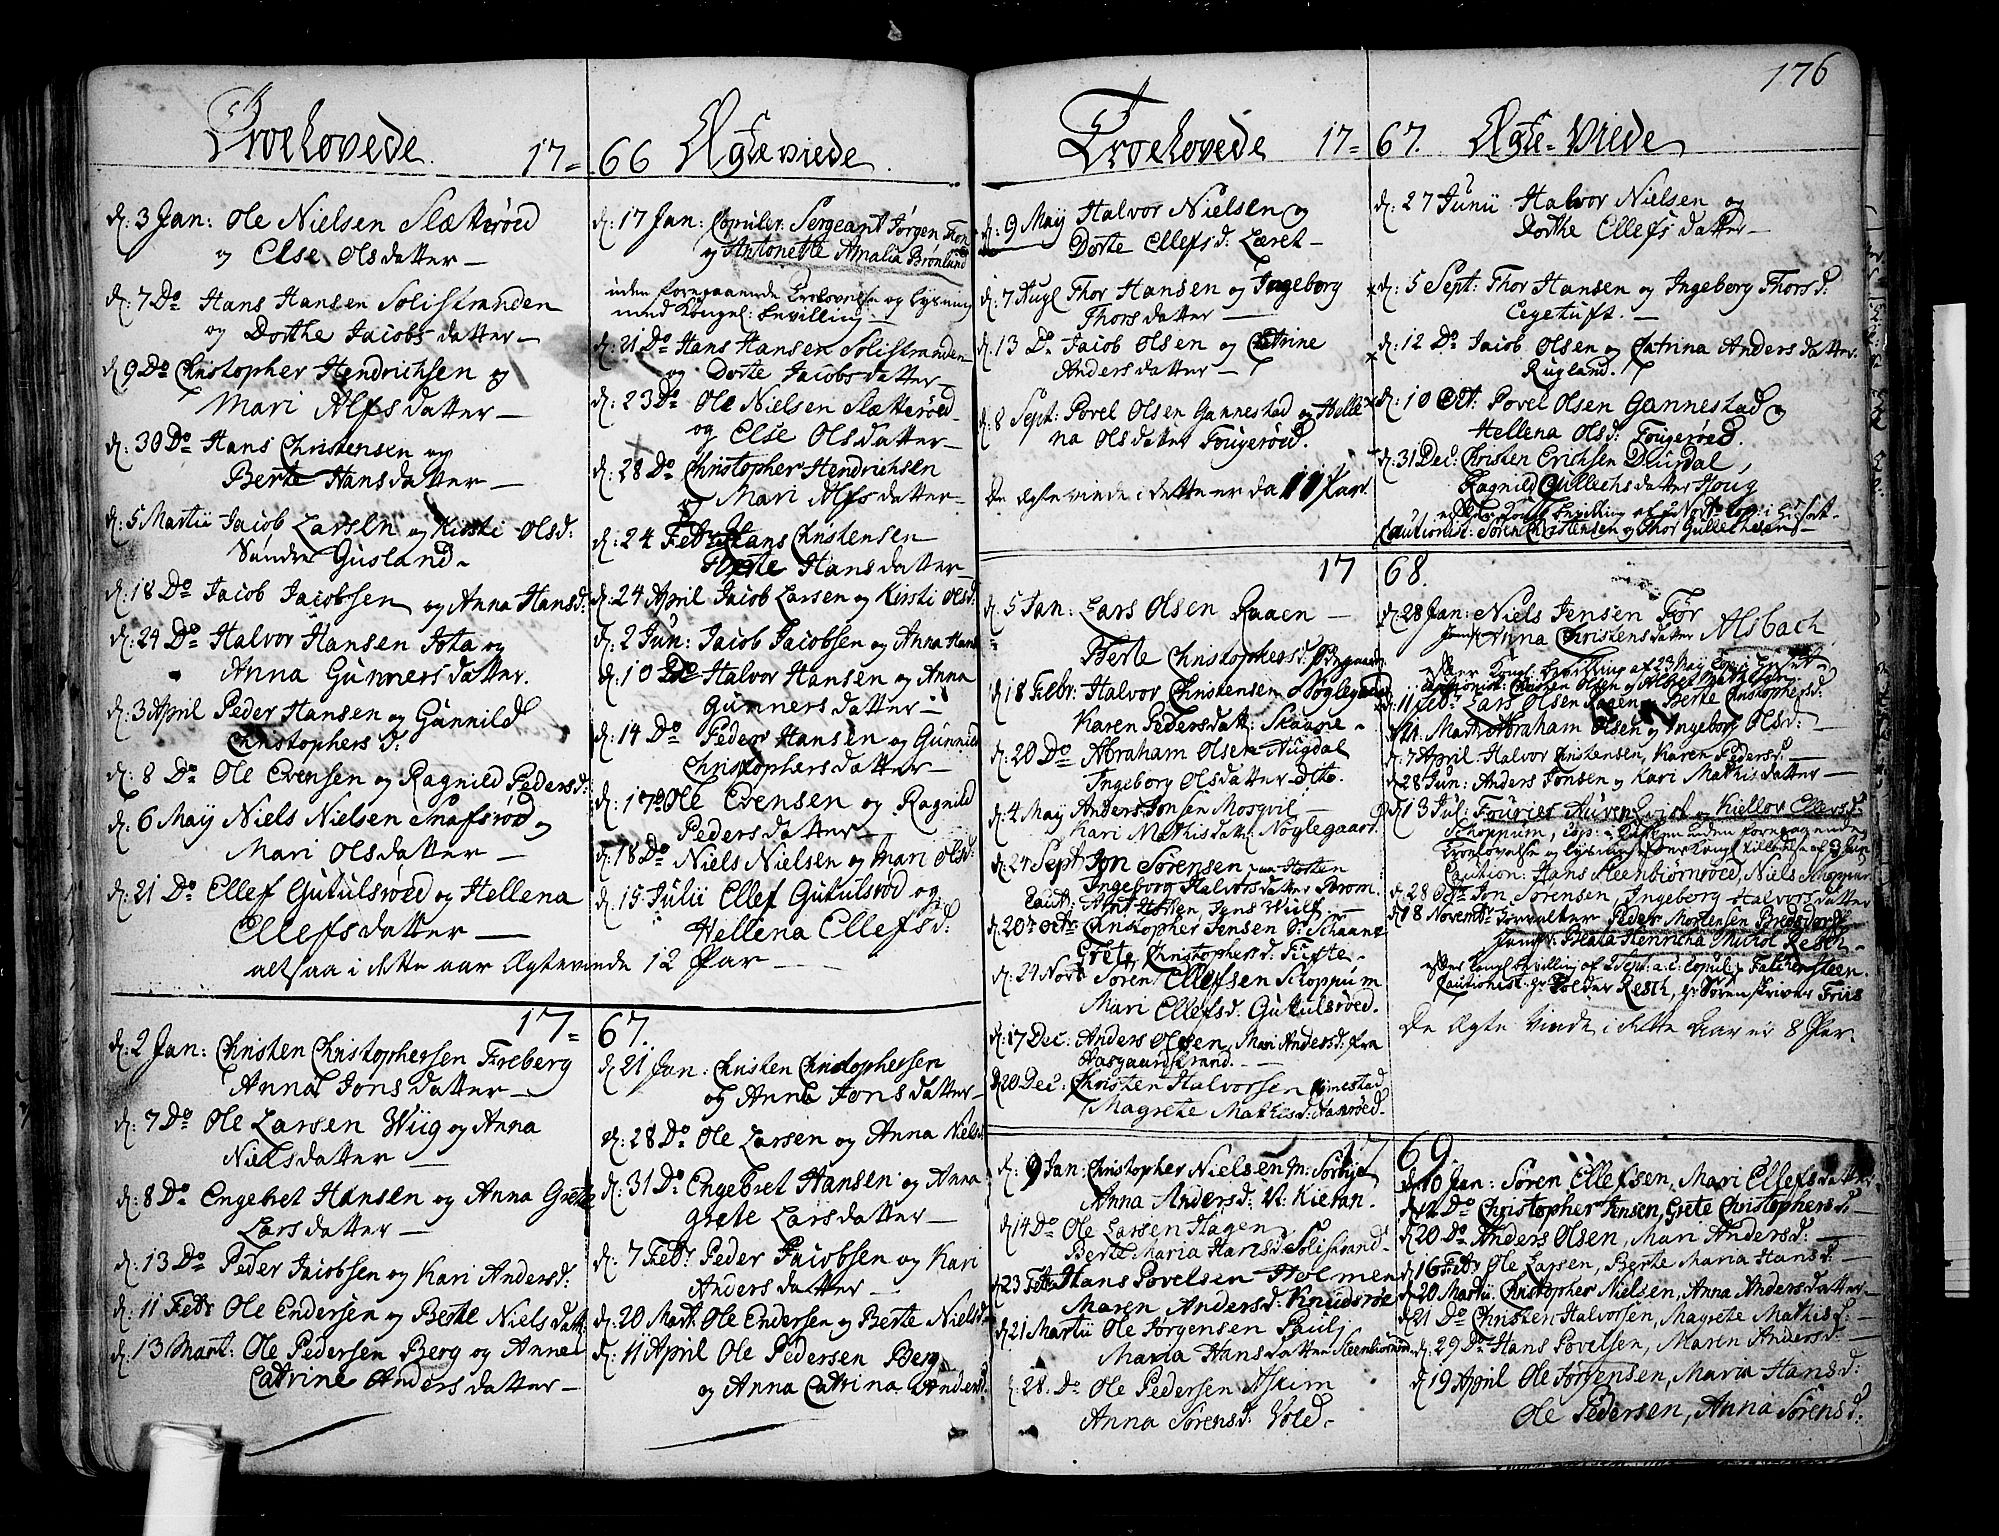 Troelovede 17=
d: 3 Jan: Ole Nielsen Slætterøed
og Else Olsdatter —
d: 7 Do Hans Hansen Solistranden
og Dorthe Jacobs datter —
d: 9 Do Christopher Hendrichsen og
Mari Alfsdatter —
d: 30 Do Hans Christensen og
Berte Hansdatter —
d: 5 Martii Jacob Larsen og Kirsti Olsd:
Søndre Gusland —
d: 18 Do Jacob Jacobsen og Anna Hansd:
d: 24 Do Halvor Hansen Fota og
Anna Gunnersdatter.
d: 3 April Peder Hansen og Gunnild
Christophersd:
d: 8 Do Ole Evensen og Ragnild Pedersd:
d: 6 May Niels Nielsen Snafsrød og
Mari Olsdatter —
d: 21 Do Ellef Gutulsrøed og Hellena
Ellefsdatter —
altsaa i dette aar Ægteviede 12 Par —
17=
d: 2 Jan: Christen Christophersen Freberg
Anna Jonsdatter —
d: 7 Do Ole Larsen Wiig og Anna
Nielsdatter —
d: 8 Do Engebret Hansen og Anna Grete
Larsdatter —
d: 13 Do Peder Jacobsen og Kari Andersd:
d: 11 Febr Ole Endersen og Berte Nielsdatt:
d: 13 Mart: Ole Pedersen Berg og Anne
Catrine Andersdatter —
66 Ægte viede
d: 17 Jan: Copuler: Sergeant Jørgen
og Antonette Amalia Brønlund
uden foregaaende Trolovelse og Lysning
med Kongel: bevilling —
d: 21 Do Hans Hansen Solistranden
og Dorte Jacobsdatter —
d: 23 Do Ole Nielsen Slætterøed
og Else Olsdatter —
d: 28 Do Christopher Hendrichsen
og Mari Alfsdatter —
d: 24 Febr Hans Christensen
Berte Hansdatter —
d: 24 April Jacob Larsen og Kirsti Olsd:
d: 2 Jun: Jacob Jacobsen og Anna Hans
d: 10 Do Halvor Hansen og Anna
Gunnersdatter —
d: 14 Do Peder Hansen og Gunnild
Christophersdatter —
d: 17 Do Ole Evensen og Ragnild
Pedersdatter —
d: 18 Do Niels Nielsen og Mari Olsd:
d: 15 Julii Ellef Gutulsrød og
Hellena Ellefsd:
67.
d: 21 Jan: Christen Christophersen
og Anne Jonsdatter —
d: 28 Do Ole Larsen og Anna Nielsd
d: 31 Do Engebret Hansen og Anna
Grete Larsdatter —
d: 7 Febr Peder Jacobsen og Kari
Andersdatter —
d: 20 Mart: Ole Endersen og Berte Nielsd
d: 11 April Ole Pedersen Berg
og Anna Catrina Andersd.
176
Troelovede 17=
d: 9 May Halvor Nielsen og
Dorte Ellefsd: Læret —
d: 7 Augl Thor Hansen og Ingeborg
Thorsdatter —
d: 13 Do Jacob Olsen og Catrine
Andersdatter —
d: 8 Sept: Povel Olsen Gannestad og Helle
na Olsdatter Fougerøed.
De Ægteviede i dette er da 11 Par.
17
d: 5 Jan: Lars Olsen Raaen —
Berte Christophersd:
d: 18 Febr: Halvor Christensen Nøglegaard
Karen Pedersdatt: Skaane —
d: 20 Do Abraham Olsen Augdal
Ingeborg Olsdatter dito.
d: 4 May Anders Jonsen
Kari Mathisdatt: Nøglegaard.
d: 24 Sept Jon Sørensen
Ingeborg Halvorsdatter Brom.
Caut: Jens Wulf —
d: 20 octr Christopher Jensen
Grete Christophersd: Tufte —
d: 24 Novr Søren Ellefsen Skoppum
Mari Ellefsd: Gutulsrøed.
d: 17 Dec: Anders Olsen, Mari Andersd: fra
Aasgaardstrand —
d: 20 Dec: Christen Halvorsen
Magrete Mathisd:
17
d: 9 Jan: Christopher Nielsen
Anna Andersd:
d: 14 Do Ole Larsen Hagen
Berte Maria Hansd: Solistrand —
d: 23 Febr Hans Povelsen Holmen
Maren Andersd: Knudsrøe
d: 21 Martii Ole Jørgensen
Maria Hansdatter
d: 28. Do Ole Pedersen Askim
Anna Sørensd: Vold —
67. Ægte-Viede
d: 27 Junii Halvor Nielsen og
Dorthe Ellefsdatter —
d: 5 Sept: Thor Hansen og Ingeborg Thorsd:
Eegetuft —
d: 12 Do Jacob Olsen og Catrina Andersdatter.
Rugland.
d: 10 Oct: Povel Olsen Gannestad og
Hellena Olsd: Fougerøed.
d: 31 Dec: Christen Erichsen
Ragnild Gullichsdatter Houg
Cautionist: Søren Christensen og Thor Gullichsen —
68.
d: 28 Jan: Niels Jensen
Anna Christensdatter Alsbach
efter Kongl: bevilling af 23 May
d: 11 Feb: Lars Olsen Raaen, Berte Christophersd:
d: 21. Mart: Abraham Olsen og Ingeborg Olsd: —
d: 7 April Halvor Christensen, Karen Pedersd: —
d: 28 Jun: Anders Jonsen og Kari Mathisdatter —
d: 13 Jul: Fourier og Kiellov Ellefsd:
Skoppum, uden foregaaende
Trolovelse og Lysning
Caution: Hans Steenbiørnsrøed, Niels Skoppum
d: 28 Do Jon Sørensen, Ingeborg Halvorsdatter
d: 18 Novembr Peder Mortensen Bredsdorff
Beata Henricha Resch —
efter kongl bevilling af 2 Sept: a.c: Copul: Falchensteen.
Cautionist: Resch, Sørenskriver Friis
De Ægte Viede i dette Aar er 8 Par.
69.
d: 10 Jan: Søren Ellefsen, Mari Ellefsdatter
d: 12 Do Christopher Jensen, Grete Christophersd: —
d: 20 Do Anders Olsen, Mari Andersd: —
d: 16 Febr Ole Larsen, Berte Maria Hansd: —
d: 20 Martii Christopher Nielsen, Anna Andersdatter —
d: 21 Do Christen Halvorsen, Magrete Mathisd: —
d: 29 Do Hans Povelsen, Maren Andersd: —
d: 19 April Ole Jørgensen, Maria Hansd:
Ole Pedersen, Anna Sørensd: